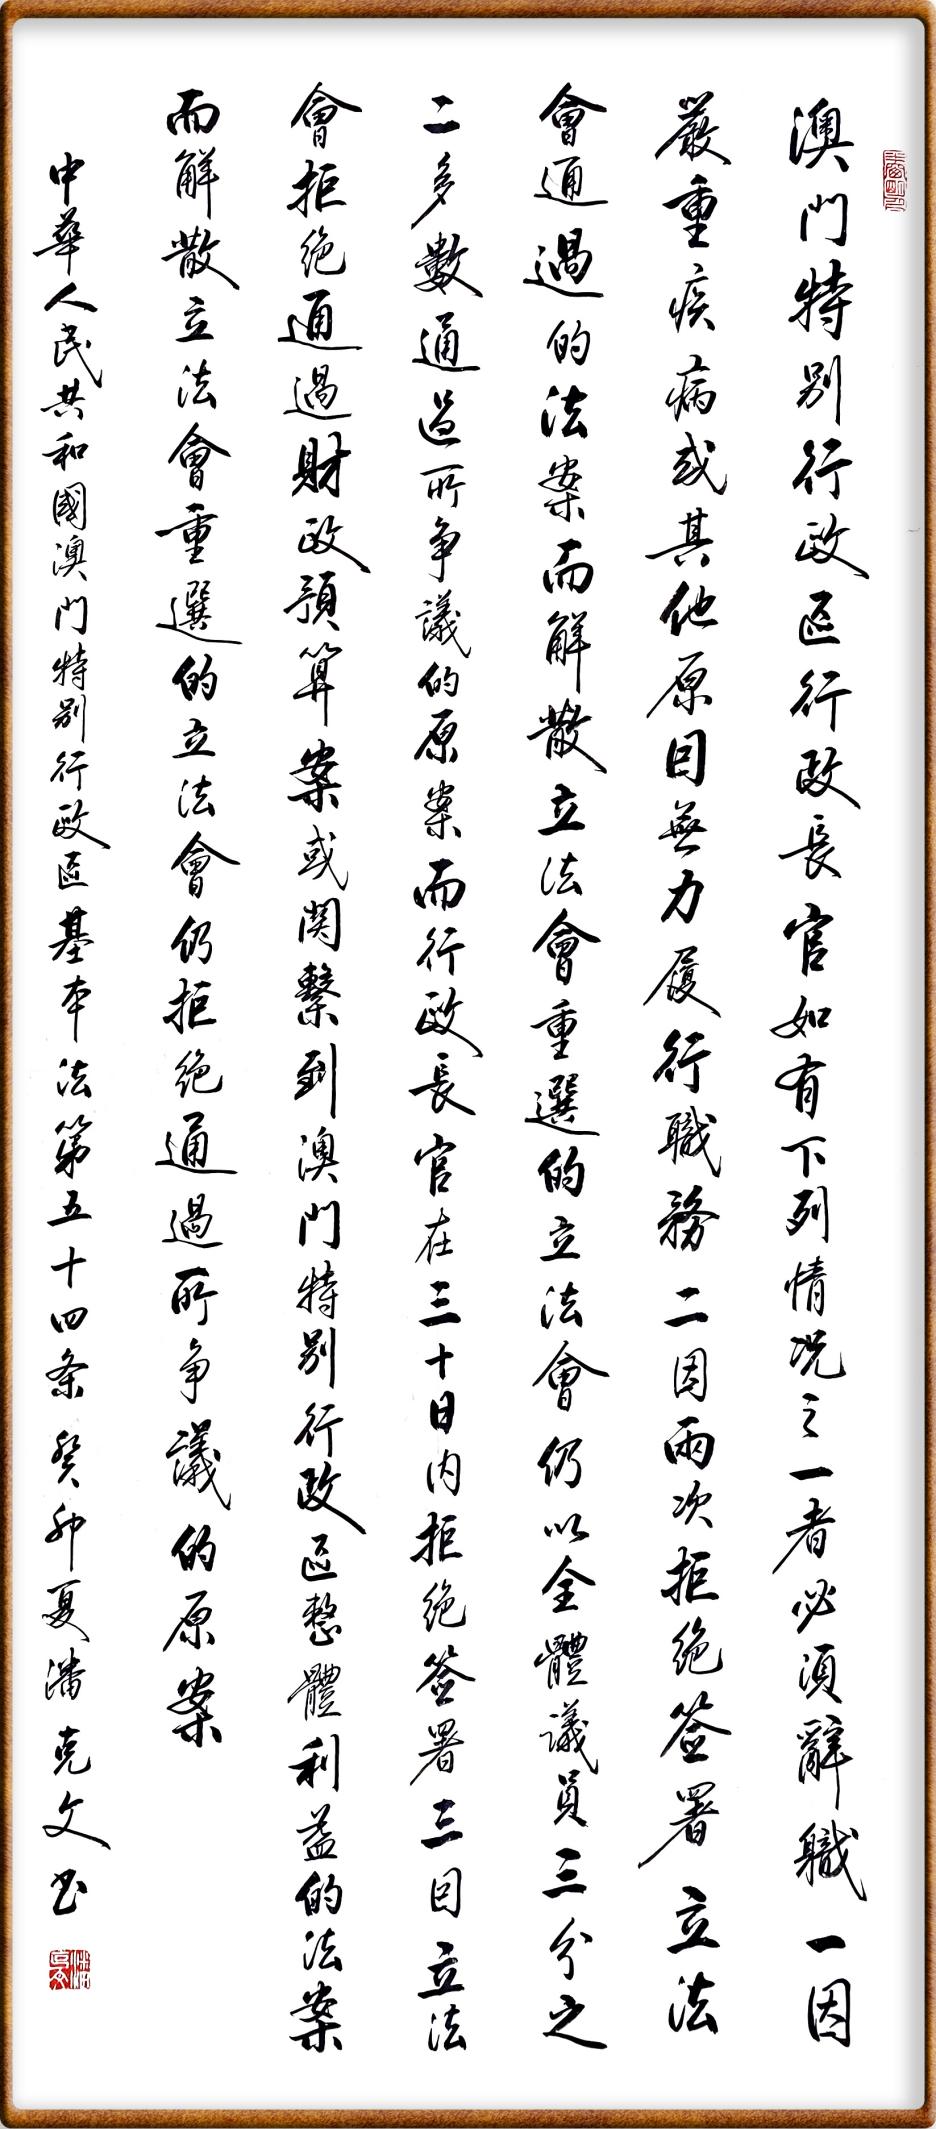 澳門特别行政區行政長官如有下列情况之一者必須辭職一因
嚴重疾病或其他原因無力履行職務二因兩次拒絶簽署立法
會通過的法案而解散立法會重選的立法會仍以全體議員三分之
二多數通過所争議的原案而行政長官在三十日内拒絶簽署三因立法
會拒絶通過財政預算案或関繫到澳門特别行政區整體利益的法案
而解散立法會重選的立法會仍拒絶通過所争議的原案
中華人民共和國澳門特别行政區基本法第五十四条癸卯夏潘克文书